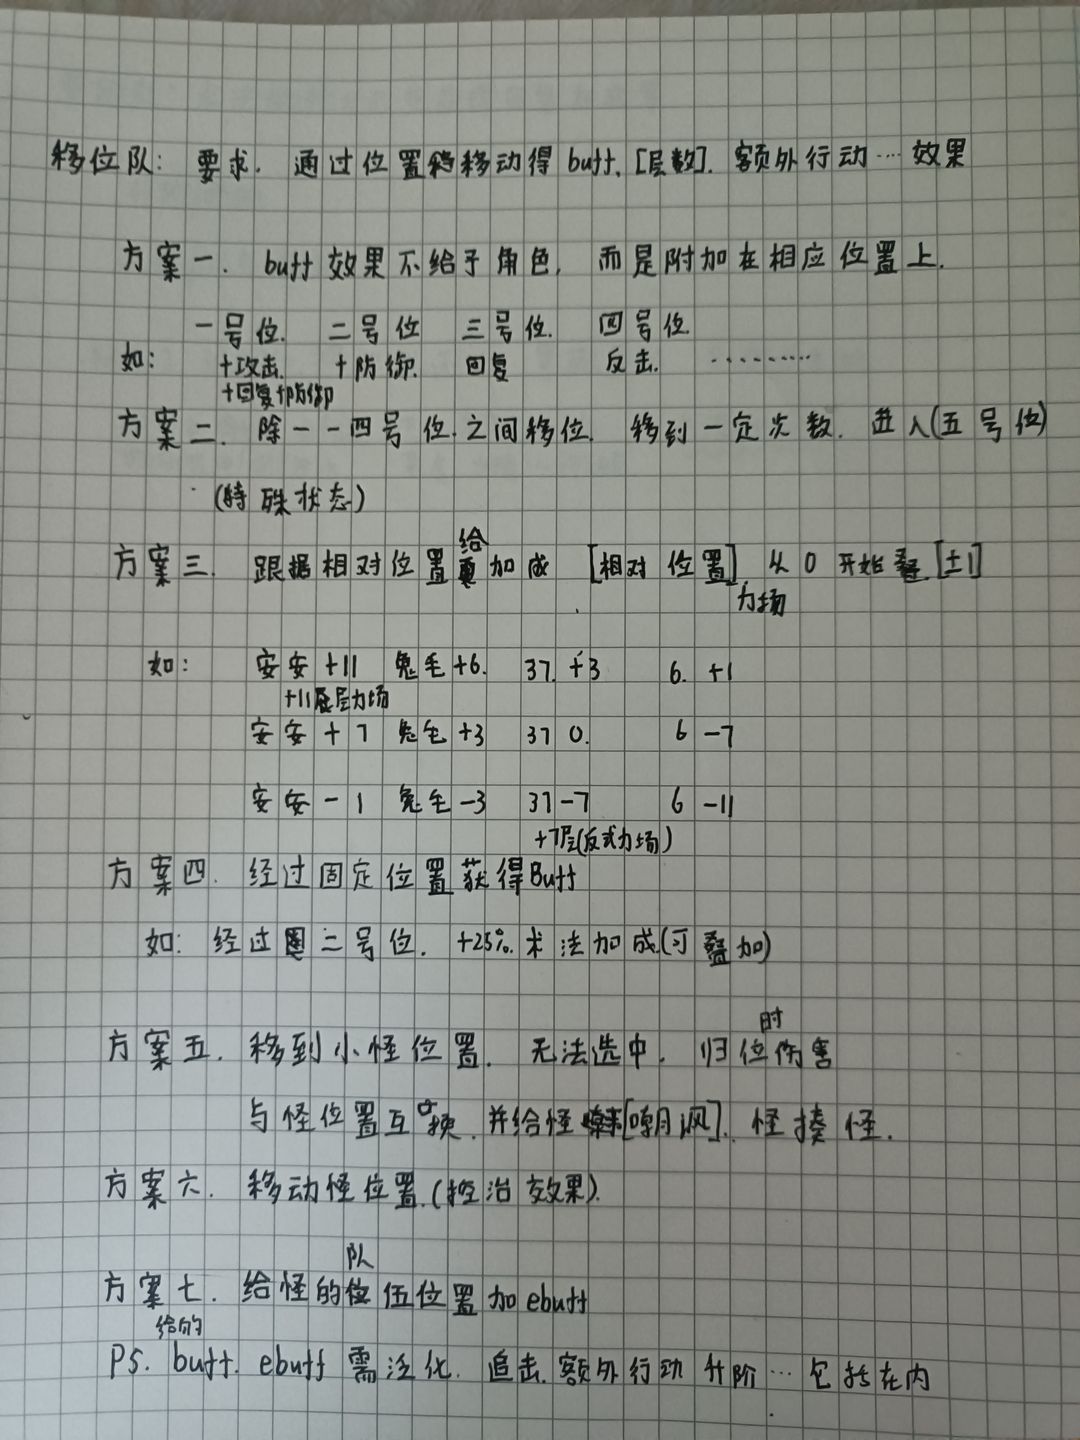 移位队: 要求. 通过位置移动得 buff. [层数]. 额外行动…效果
方案一. buff 效果不给予角色, 而是附加在相应位置上.
一号位. 二号位 三号位. 四号位
如: +攻击. +防御. 回复 反击. ………
+回复+防御
方案二. 除一一四号位之间移位. 移到一定次数. 进入(五号位)
(特殊状态)
给
方案三. 跟据相对位置 加成 [相对位置] 从0开始叠[±1]
力场
如: 安安+11 兔毛+6. 37.+3 6. +1
+11层力场
安安+7 兔毛+3 37 0. 6 -7
安安-1 兔毛-3 37-7 6 -11
+7层(反式力场)
方案四. 经过固定位置获得Buff
如: 经过二号位. +25%. 术法加成(可叠加)
时
方案五. 移到小怪位置. 无法选中. 归位伤害
与怪位置互换. 并给怪[嘲讽]. 怪揍怪.
方案六. 移动怪位置.(控治效果).
队
方案七. 给怪的伍位置加ebuff
给的
PS. buff. ebuff 需泛化. 追击. 额外行动 升阶…包括在内